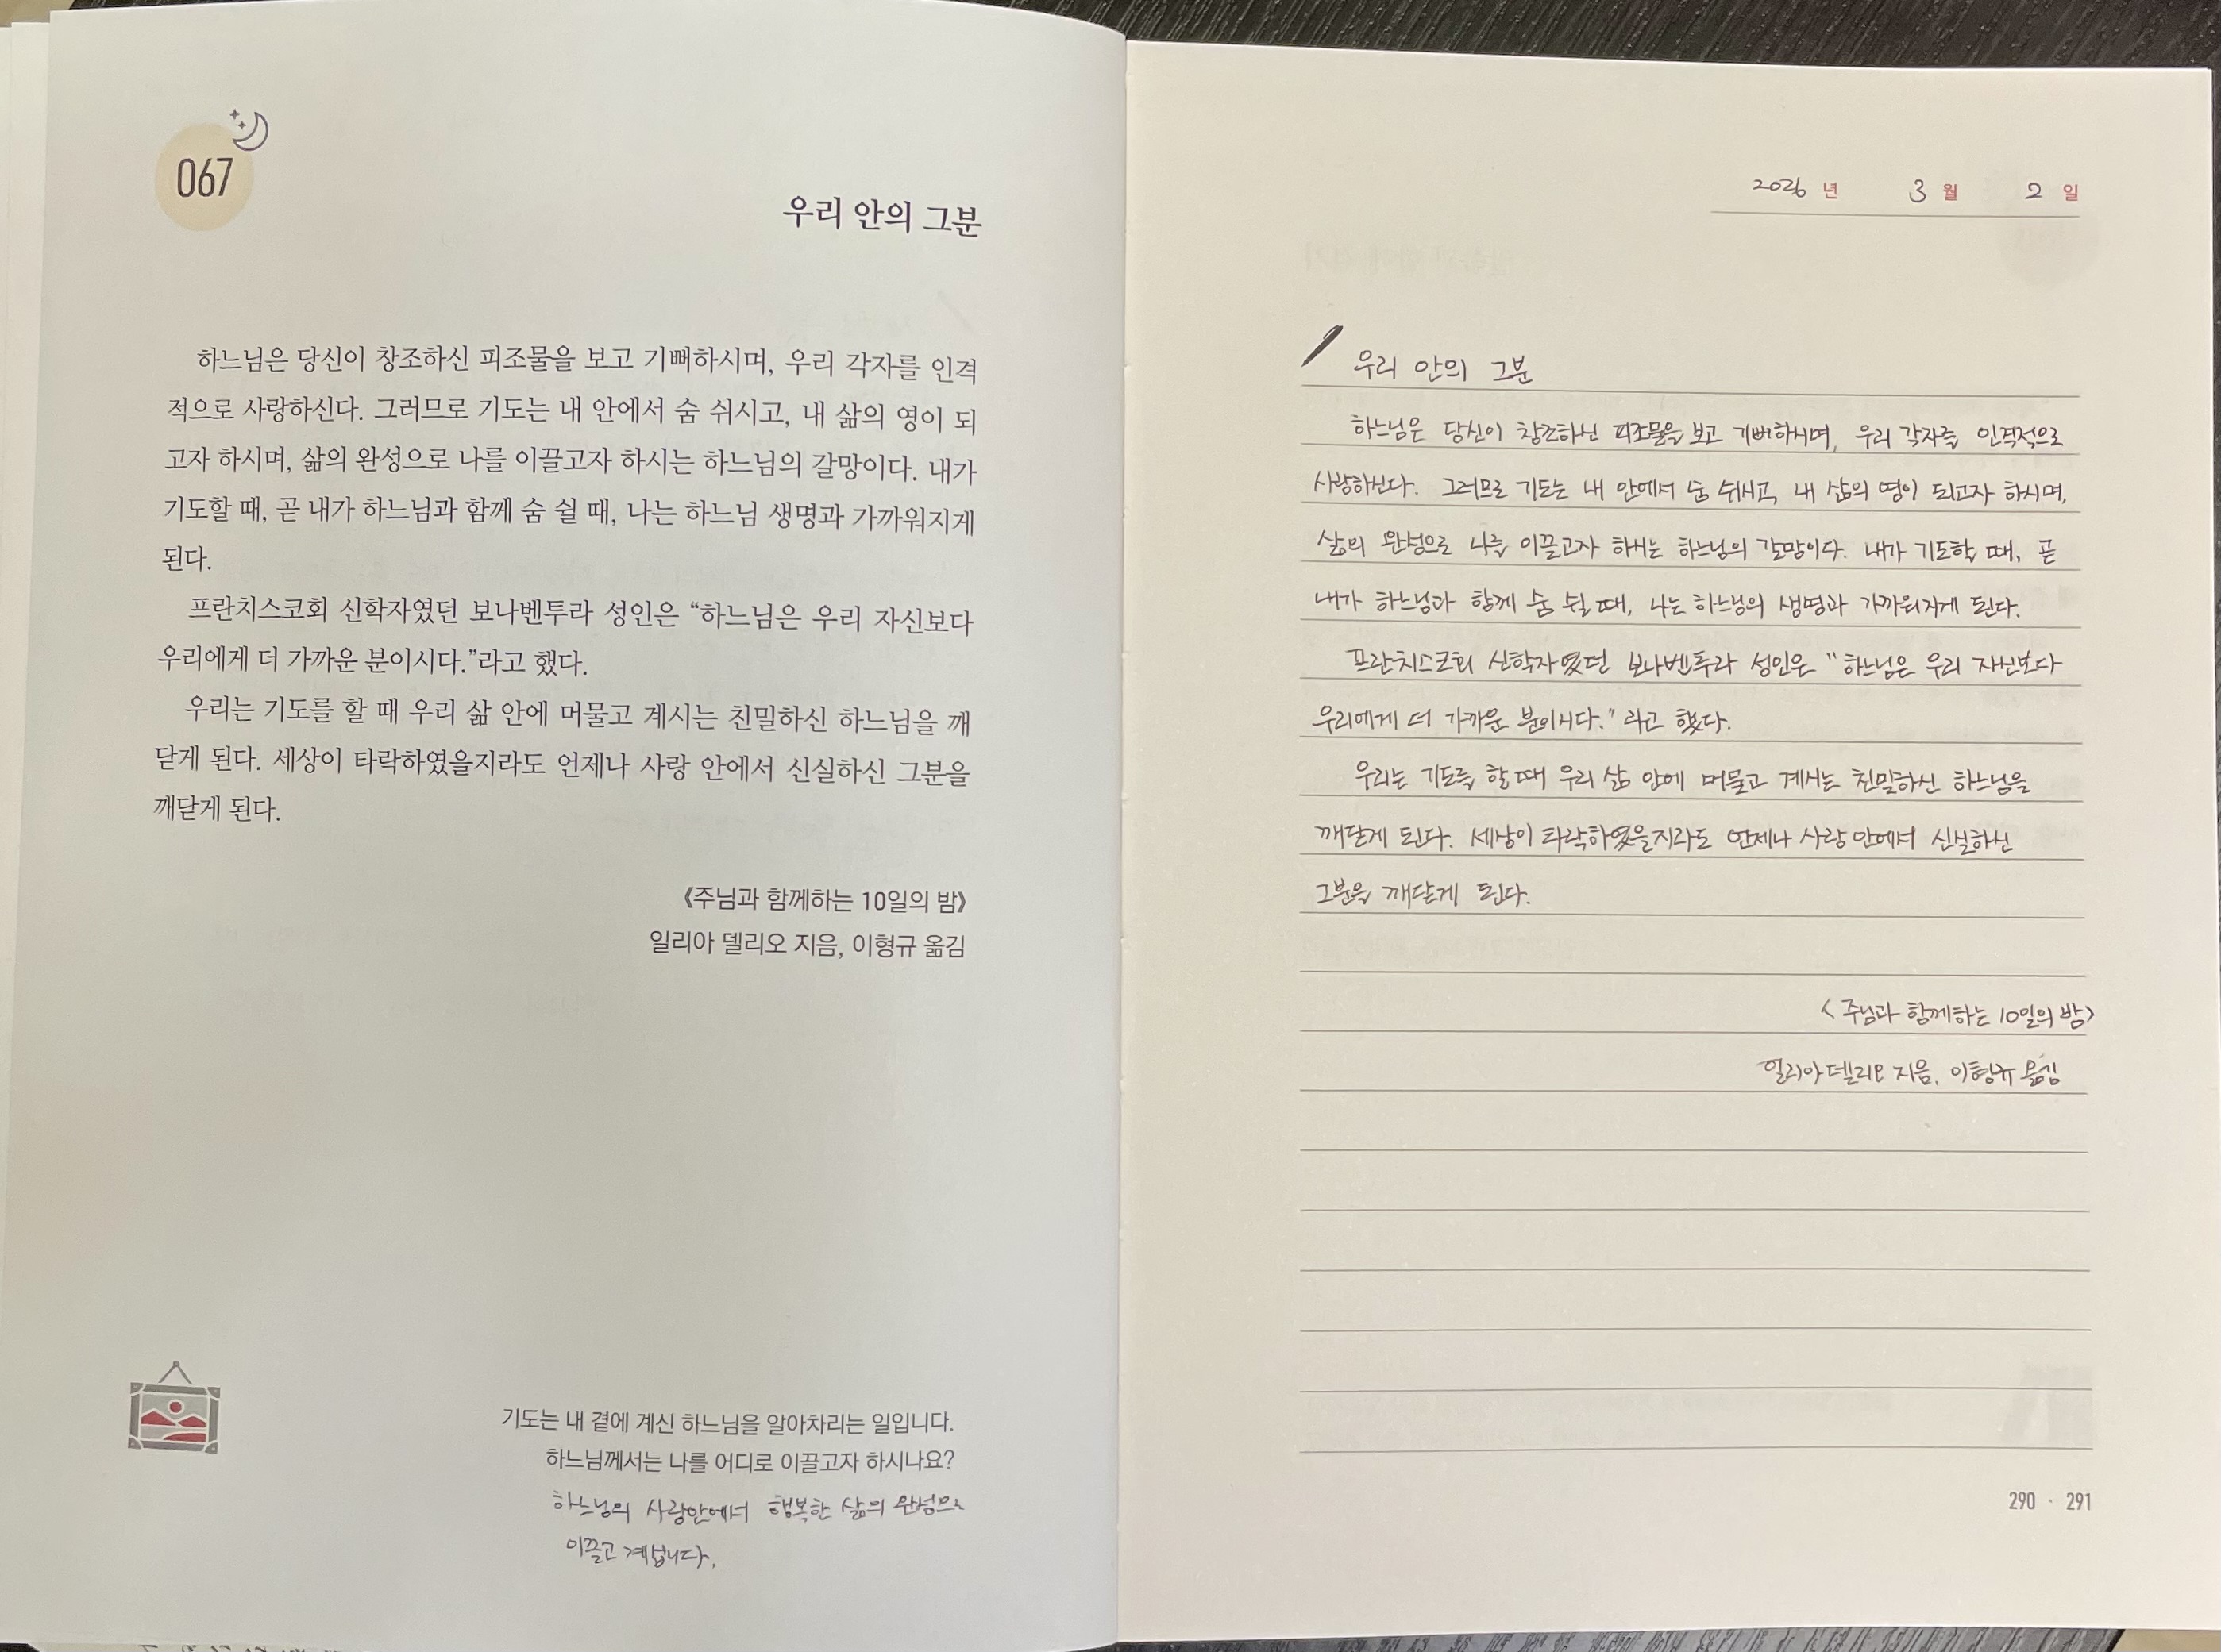 067
우리 안의 그분
하느님은 당신이 창조하신 피조물을 보고 기뻐하시며, 우리 각자를 인격
적으로 사랑하신다. 그러므로 기도는 내 안에서 숨 쉬시고, 내 삶의 영이 되
고자 하시며, 삶의 완성으로 나를 이끌고자 하시는 하느님의 갈망이다. 내가
기도할 때, 곧 내가 하느님과 함께 숨 쉴 때, 나는 하느님 생명과 가까워지게
된다.
프란치스코회 신학자였던 보나벤투라 성인은 “하느님은 우리 자신보다
우리에게 더 가까운 분이시다.”라고 했다.
우리는 기도를 할 때 우리 삶 안에 머물고 계시는 친밀하신 하느님을 깨
닫게 된다. 세상이 타락하였을지라도 언제나 사랑 안에서 신실하신 그분을
깨닫게 된다.
《주님과 함께하는 10일의 밤》
일리아 델리오 지음, 이형규 옮김
기도는 내 곁에 계신 하느님을 알아차리는 일입니다.
하느님께서는 나를 어디로 이끌고자 하시나요?
하느님의 사랑안에서 행복한 삶의 완성으로
이끌고 계십니다.
2026 년 3 월 2 일
우리 안의 그분
하느님은 당신이 창조하신 피조물을 보고 기뻐하시며, 우리 각자를 인격적으로
사랑하신다. 그러므로 기도는 내 안에서 숨 쉬시고, 내 삶의 영이 되고자 하시며,
삶의 완성으로 나를 이끌고자 하시는 하느님의 갈망이다. 내가 기도할 때, 곧
내가 하느님과 함께 숨 쉴 때, 나는 하느님의 생명과 가까워지게 된다.
프란치스코회 신학자였던 보나벤투라 성인은 "하느님은 우리 자신보다
우리에게 더 가까운 분이시다." 라고 했다.
우리는 기도를 할 때 우리 삶 안에 머물고 계시는 친밀하신 하느님을
깨닫게 된다. 세상이 타락하였을지라도 언제나 사랑 안에서 신실하신
그분을 깨닫게 된다.
<주님과 함께하는 10일의 밤>
일리아 델리오 지음, 이형규 옮김
290 · 291